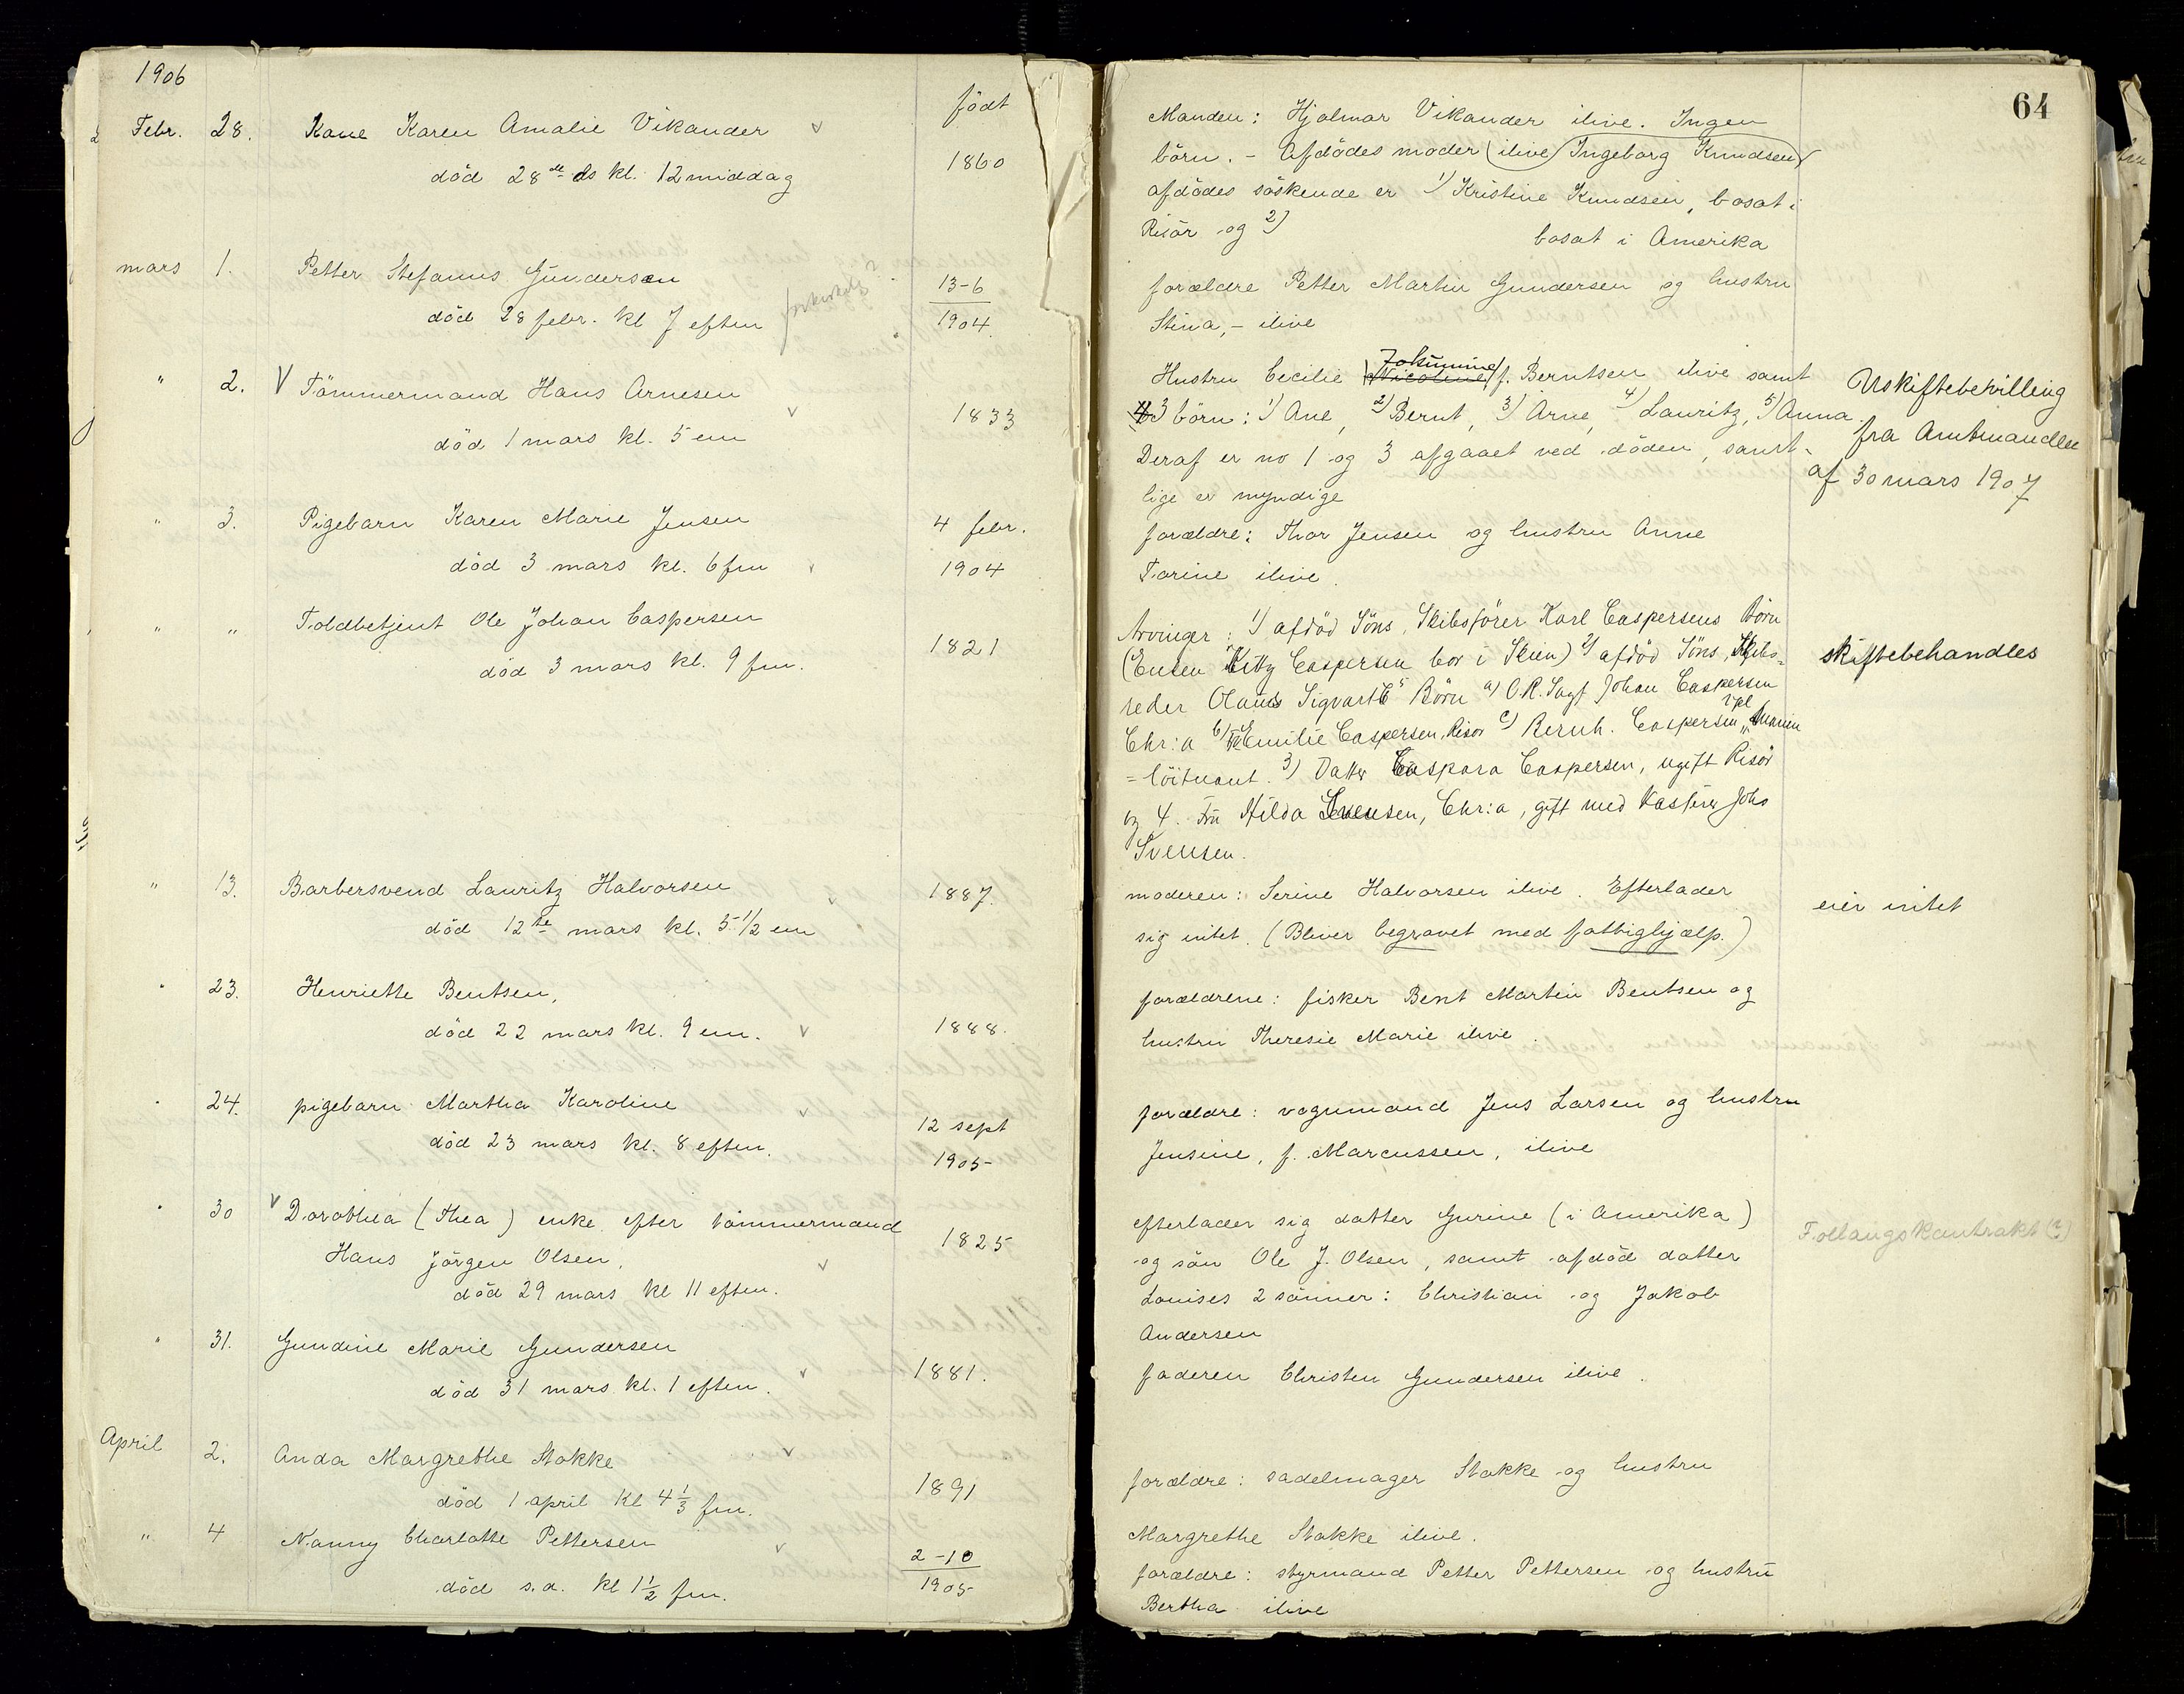 1906
födt
Febr. 28. Kone Karen Amalie Vikander
död 28de ds kl. 12 middag
1860
mars 1. Petter Stefanus Gundersen
död 28 febr. kl 7 eftm
13-6
1904
" 2. V Tömmermand Hans Arnesen
död 1 mars kl. 5 em
1833
" 3. Pigebarn Karen Marie Jensen
död 3 mars kl. 6 fm
4 febr.
1904
" " Toldbetjent Ole Johan Caspersen
död 3 mars kl. 9 fm.
1821
" 13. Barbersvend Lauritz Halvorsen
död 12te mars kl. 5 1/2 em
1887.
" 23. Henriette Bentsen,
död 22 mars kl. 9 em.
1888.
" 24. pigebarn Martha Karoline
död 23 mars kl. 8 eftm.
12 sept
1905
" 30 V Dorothea (Thea) enke efter tömmermand
Hans Jörgen Olsen,
död 29 mars kl 11 eftm.
1825
" 31. Gundine Marie Gundersen
död 31 mars kl. 1 eftm.
1881.
April 2. Anda Margrethe Stokke
död 1 april kl 4 1/3 fm.
1891
" 4 Nanny Charlotte Pettersen
död s.d. kl 1 1/2 fm.
2-10
1905
64
Manden: Hjalmar Vikander ilive. Ingen
börn. - Afdödes moder (ilive) Ingeborg Knudsen
afdödes söskende er 1) Kristine Knudsen, bosat i
Risör og 2) bosat i Amerika
forældre Petter Martin Gundersen og hustru
Stina, - ilive
Hustru Cecilie Nicoline f. Berntsen ilive samt
3 börn: 1) Ane, 2) Bernt, 3) Arne, 4) Lauritz, 5) Anna.
Deraf er no 1 og 3 afgaaet ved döden, samt-
lige er myndige
Uskiftebevilling
fra Amtmanden
af 30 mars 1907
forældre: Thor Jensen og hustru Anne
Torine ilive.
Arvinger: 1) afdöd Söns, Skibsförer Karl Caspersens Börn
(Enken Kitty Caspersen bor i Skien) 2) afdöd Söns, Skibs-
reder Olaus Sigvart C's Börn a) O.R. Sagf. Johan Caspersen
Chr:a b) Emilie Caspersen, Risör c) Bernh. Caspersen, Marin
=löitnant. 3) Datter Caspara Caspersen, ugift Risör
og 4. Fru Hilda Svensen, Chr:a, gift med Johs
Svensen.
skiftebehandles
moderen: Serine Halvorsen ilive. Efterlader
sig intet. (Bliver begravet med fattighjælp.)
eier intet
forældrene: fisker Bent Martin Bentsen og
hustru Theresie Marie ilive.
forældre: vognmand Jens Larsen og hustru
Jensine, f. Marcussen, ilive
efterlader sig datter Gurine (i Amerika)
og sön Ole J. Olsen, samt afdöd datter
Louises 2 sönner: Christian og Jakob
Andersen
faderen Christen Gundersen ilive.
forældre: sadelmager Stokke og hustru
Margrethe Stokke ilive.
forældre: styrmand Petter Pettersen og hustru
Bertha ilive